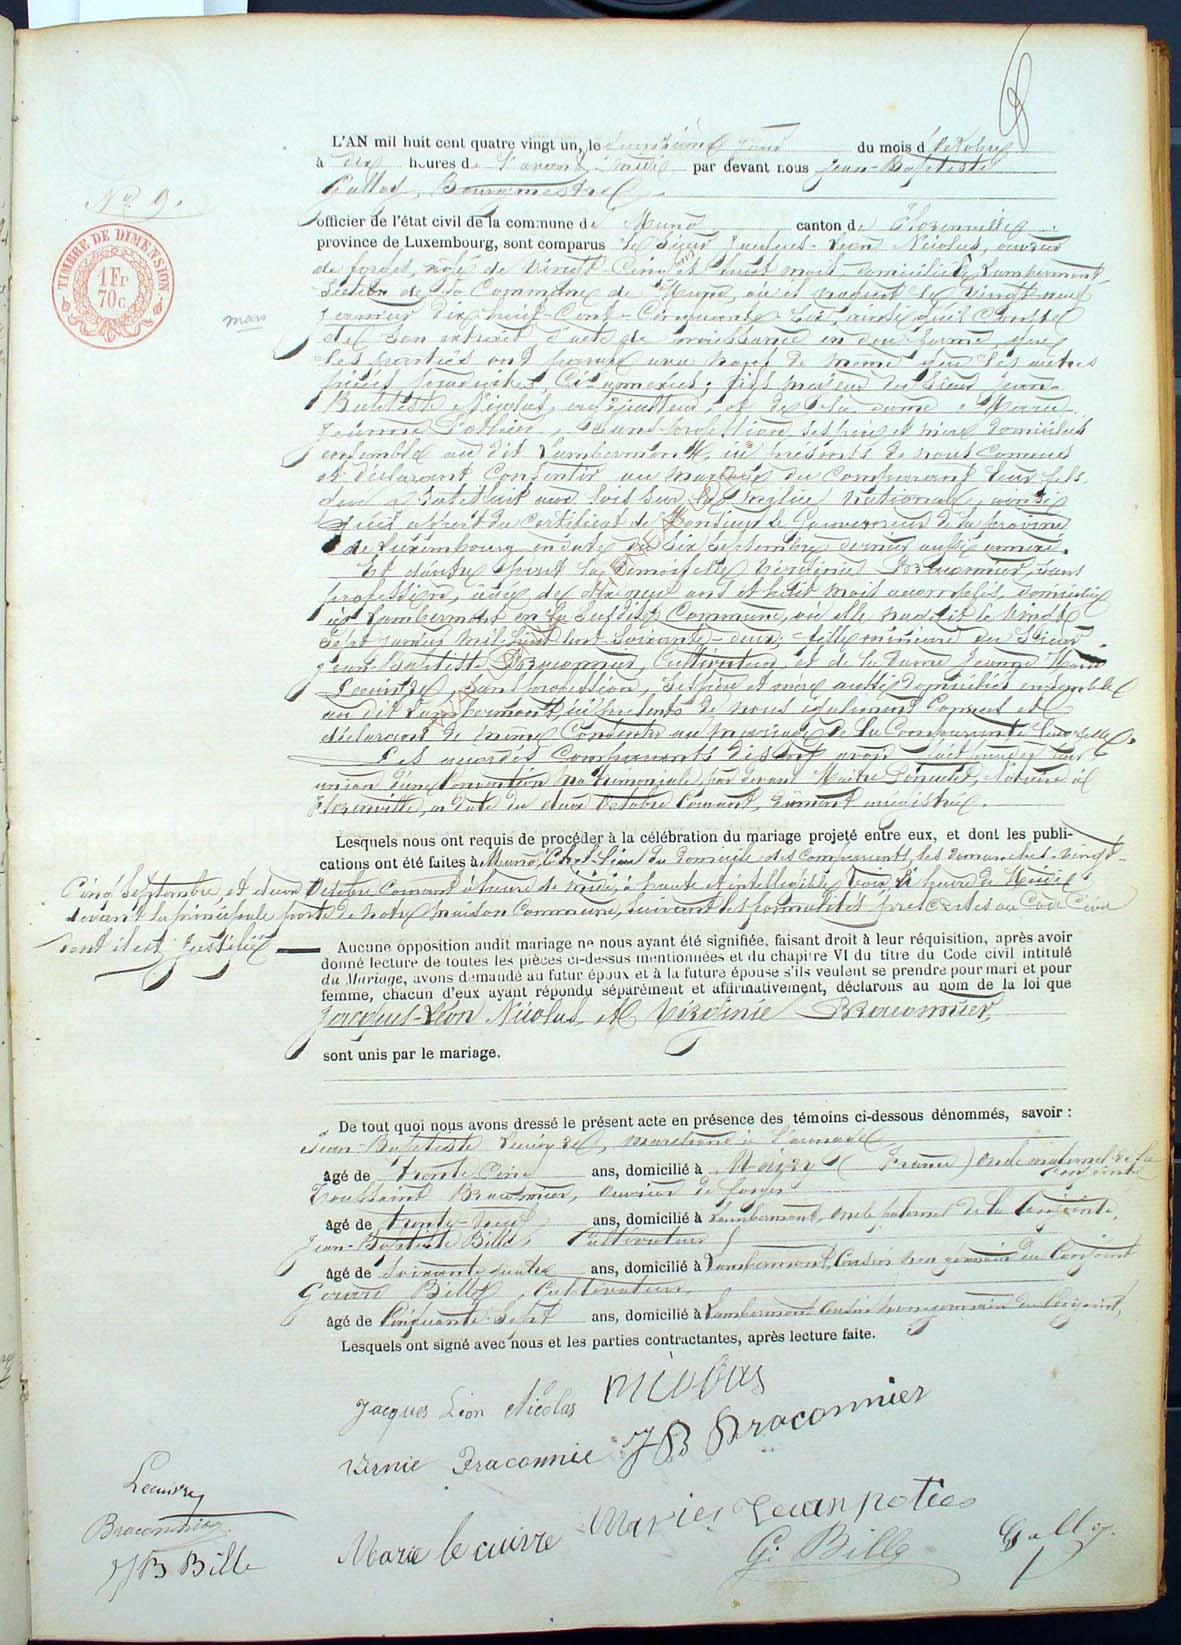 6
L'AN mil huit cent quatre vingt un, le jour du mois d'Octobre
à dix heures de l'avant midi par devant nous Jean-Baptiste
Galloy, Bourgmestre
N° 9.
officier de l'état civil de la commune de Muno canton de Florenville
TIMBRE DE DIMENSION
1 Fr
70 c.
province de Luxembourg, sont comparus le Sieur Jacques-Léon Nicolas, ouvrier
de forges, âgé de vingt-cinq ans et huit mois, domicilié à Lambermont
section de la Commune de Muno, où il naquit le vingt neuf
mars
Janvier dix huit-Cent-Cinquante-Six, ainsi qu'il Conste
de son extrait d'acte de naissance en due forme, que
les parties ont de même que les autres
pièces produites, ci-nommées; fils majeur du Sieur Jean-
Baptiste Nicolas, cultivateur, et de la dame Marie
Jeanne Pothier, sans profession, ses père et mère domiciliés
ensemble au dit Lambermont, ici présents de nous Connus
et déclarant Consentir au mariage du Comparant leur fils
qui a satisfait aux lois sur la milice nationale, ainsi
qu'il appert du certificat de Monsieur le Gouverneur de la province
de Luxembourg en date du six septembre dernier aussi annexé.
Et d'autre part la Demoiselle Virginie Braconnier, sans
profession, âgée de dix neuf ans et huit mois accomplis, domiciliée
à Lambermont en la susdite Commune, où elle naquit le vingt
sept janvier mil huit cent soixante-deux, fille mineure du Sieur
Jean-Baptiste Braconnier, Cultivateur et de la Dame Jeanne Marie
Lecuivre, sans profession, ses père et mère aussi domiciliés ensemble
au dit Lambermont, ici présents de nous également Connus et
déclarant de même Consentir au mariage de la Comparante leur fille.
Les Comparants disent avoir fait leur
union d'une Convention matrimoniale, par devant Maître notaire à
Florenville, en date du deux Octobre Courant, dûment enregistrée.
Lesquels nous ont requis de procéder à la célébration du mariage projeté entre eux, et dont les publi-
cations ont été faites à Muno, Chef-lieu du domicile des Comparants, les dimanches vingt-
Cinq Septembre, et deux Octobre Courant à l'heure de midi, à haute et intelligible voix
devant la principale porte de notre maison Commune, suivant les formalités prescrites au Code Civil
dont il est justifié
Aucune opposition audit mariage ne nous ayant été signifiée, faisant droit à leur réquisition, après avoir
donné lecture de toutes les pièces ci-dessus mentionnées et du chapitre VI du titre du Code civil intitulé
du Mariage, avons demandé au futur époux et à la future épouse s'ils veulent se prendre pour mari et pour
femme, chacun d'eux ayant répondu séparément et affirmativement, déclarons au nom de la loi que
Jacques-Léon Nicolas et Virginie Braconnier
sont unis par le mariage.
De tout quoi nous avons dressé le présent acte en présence des témoins ci-dessous dénommés, savoir :
Jean-Baptiste Lecuivre, marchand
âgé de trente cinq ans, domicilié à (France) oncle maternel de la
conjointe
Toussaint Braconnier, ouvrier de forges
âgé de trente-neuf ans, domicilié à Lambermont, oncle paternel de la Conjointe,
Jean-Baptiste Bille, Cultivateur
âgé de soixante quatre ans, domicilié à Lambermont, Cousin non germain du Conjoint
Gérard Bille, Cultivateur,
âgé de Cinquante-Sept ans, domicilié à Lambermont Cousin non germain du Conjoint,
Lesquels ont signé avec nous et les parties contractantes, après lecture faite.
Jacques Léon Nicolas nicolas
virnie Braconnie JB Braconnier
Lecuivre
Braconnier
JB Bille
Marie le cuivre Marie Jean potiee
G. Bille
Galloy